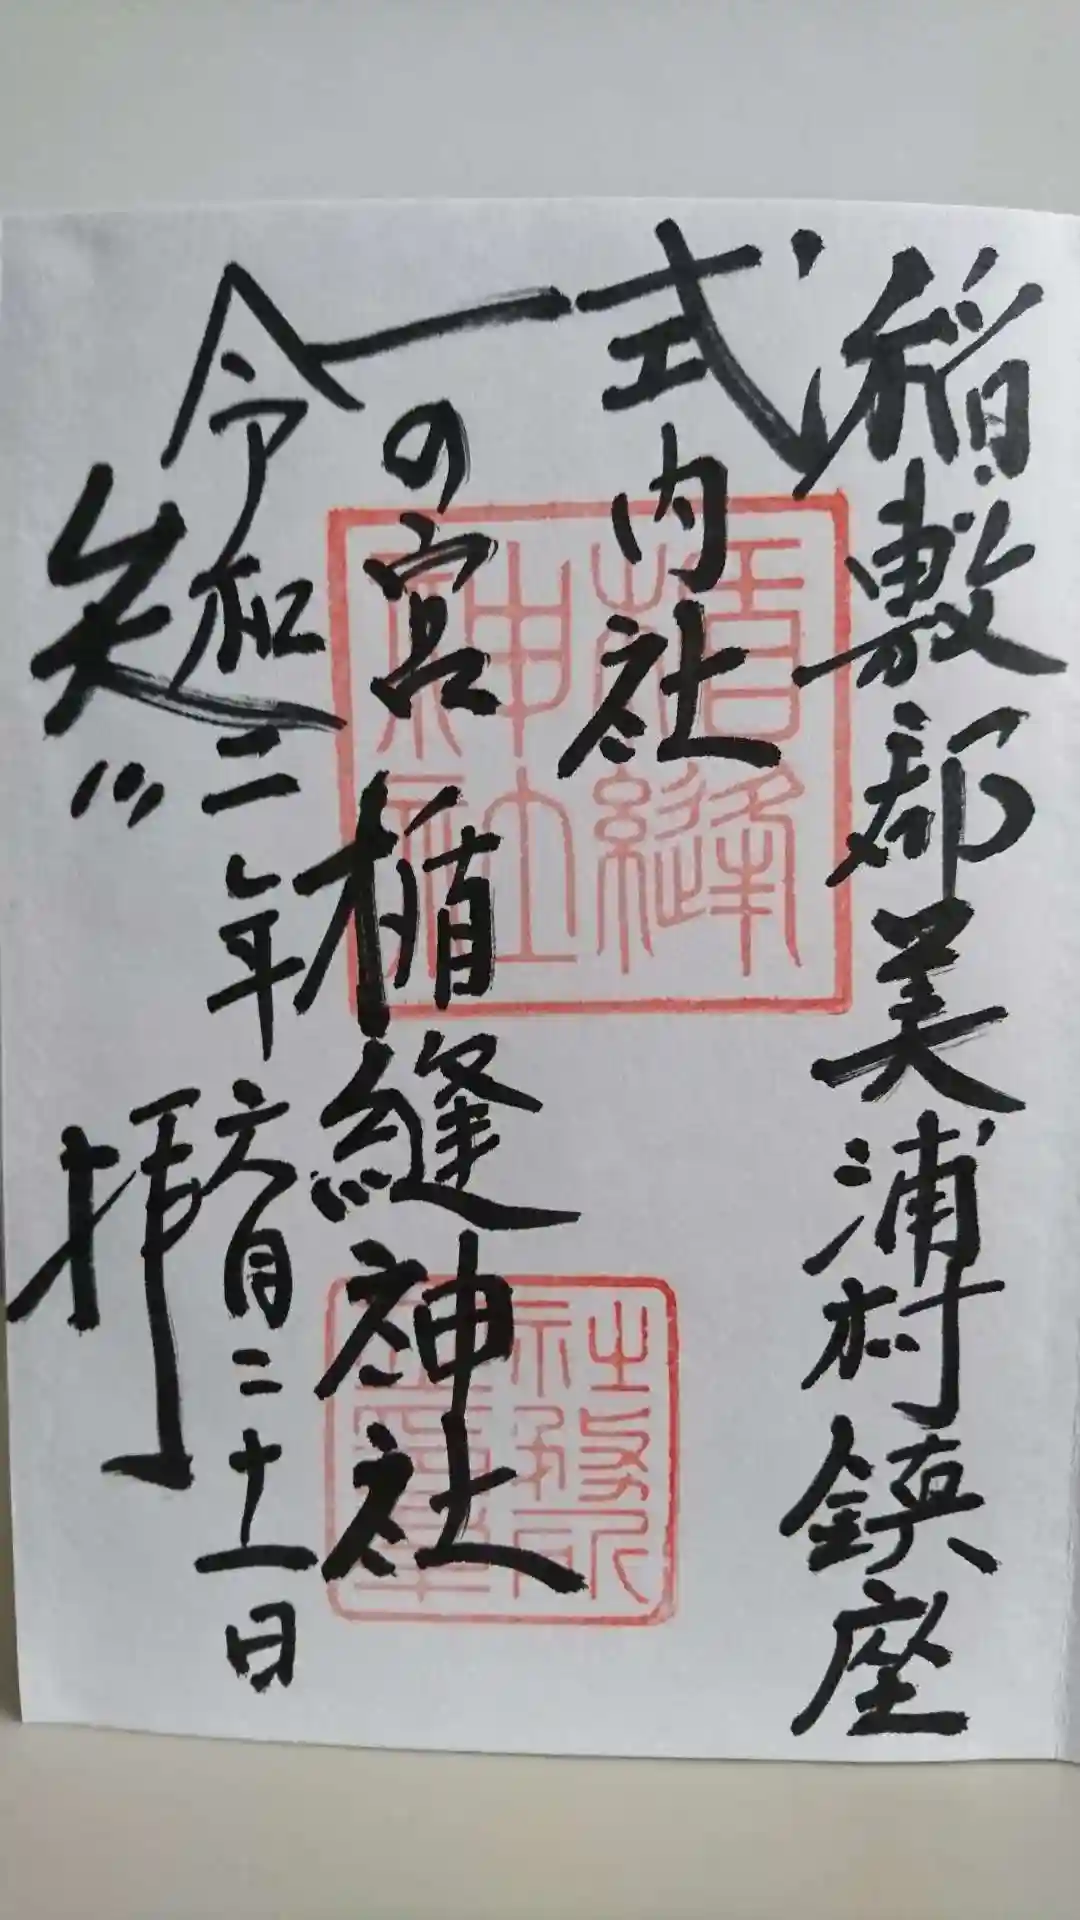 稲敷郡美浦村鎮座
式内社
一の宮楯縫神社
令和二年六月二十一日
拝
楯縫
神社
社務所